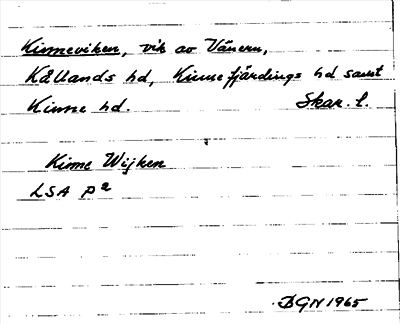 Kinneviken, vik av Vänern,
Kållands hd, Kinnefjärdings hd samt
Kinne hd. Skar. l.
Kinne Wijken
LSA P2
BGN 1965